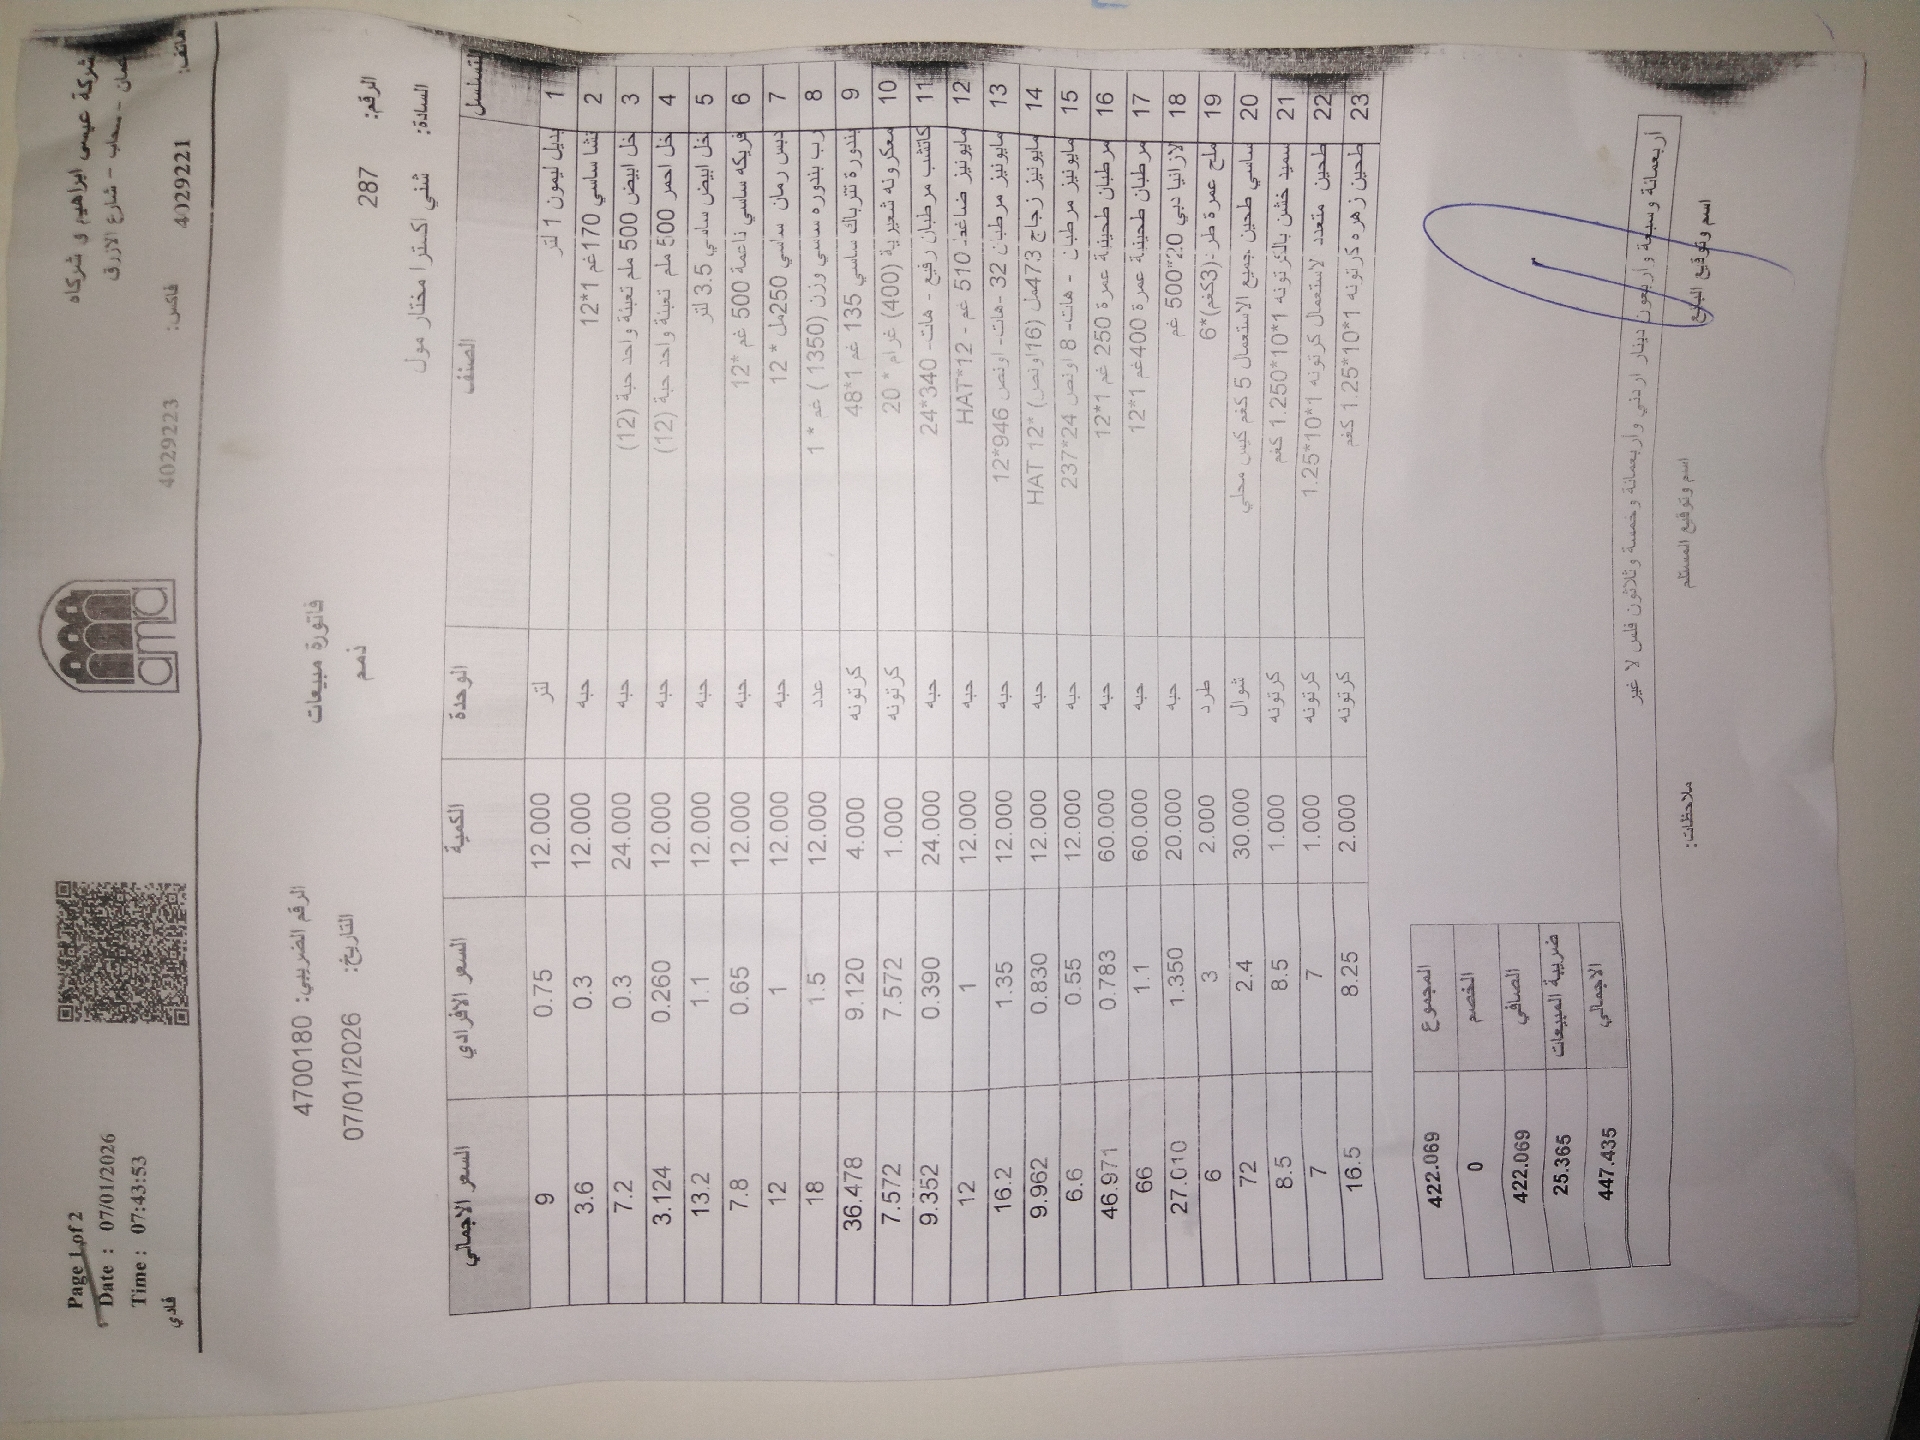 شركة عيسى ابراهيم و شركاه
عمان - سحاب - شارع الازرق
هاتف: 4029221 فاكس: 4029223
amra
Page 1 of 2
Date : 07/01/2026
Time : 07:43:53
فادي
فاتورة مبيعات
الرقم الضريبي: 4700180
الرقم: 287
ذمم
التاريخ: 07/01/2026
السادة: شني اكسترا مختار مول
التسلسل الصنف الوحدة الكمية السعر الافرادي السعر الاجمالي
1 بديل ليمون 1 لتر لتر 12.000 0.75 9
2 نشا ساسي 170غم 1*12 حبه 12.000 0.3 3.6
3 خل ابيض 500 ملم تعبئة واحد حبة (12) حبه 24.000 0.3 7.2
4 خل احمر 500 ملم تعبئة واحد حبة (12) حبه 12.000 0.260 3.124
5 خل ابيض ساسي 3.5 لتر حبه 12.000 1.1 13.2
6 فريكه ساسي ناعمة 500 غم *12 حبه 12.000 0.65 7.8
7 دبس رمان ساسي 250مل * 12 حبه 12.000 1 12
8 رب بندوره ساسي وزن (1350 ) غم * 1 عدد 12.000 1.5 18
9 بندورة تتراباك ساسي 135 غم 1*48 كرتونه 4.000 9.120 36.478
10 معكرونه شعيرية (400) غرام * 20 كرتونه 1.000 7.572 7.572
11 كاتشب مرطبان رفيع - هات- 340*24 حبه 24.000 0.390 9.352
12 مايونيز ضاغط- 510 غم - HAT*12 حبه 12.000 1 12
13 مايونيز مرطبان 32 -هات- اونص 946*12 حبه 12.000 1.35 16.2
14 مايونيز زجاج 473مل (16اونص) *12 HAT حبه 12.000 0.830 9.962
15 مايونيز مرطبان - هات- 8 اونص 24*237 حبه 12.000 0.55 6.6
16 مرطبان طحينة عمرة 250 غم 1*12 حبه 60.000 0.783 46.971
17 مرطبان طحينية عمرة 400غم 1*12 حبه 60.000 1.1 66
18 لازانيا دبي 20*500 غم حبه 20.000 1.350 27.010
19 ملح عمرة طر:(3كغم)*6 طرد 2.000 3 6
20 ساسي طحين جميع الاستعمال 5 كغم كيس محلي شوال 30.000 2.4 72
21 سميد خشن بالكرتونه 1*10*1.250 كغم كرتونه 1.000 8.5 8.5
22 طحين متعدد لاستعمال كرتونه 1*10*1.25 كرتونه 1.000 7 7
23 طحين زهره كرتونه 1*10*1.25 كغم كرتونه 2.000 8.25 16.5
المجموع 422.069
الخصم 0
الصافي 422.069
ضريبة المبيعات 25.365
الاجمالي 447.435
اربعمائة وسبعة واربعون دينار اردني واربعمائة وخمسة وثلاثون فلس لا غير
اسم وتوقيع البائع اسم وتوقيع المستلم ملاحظات: